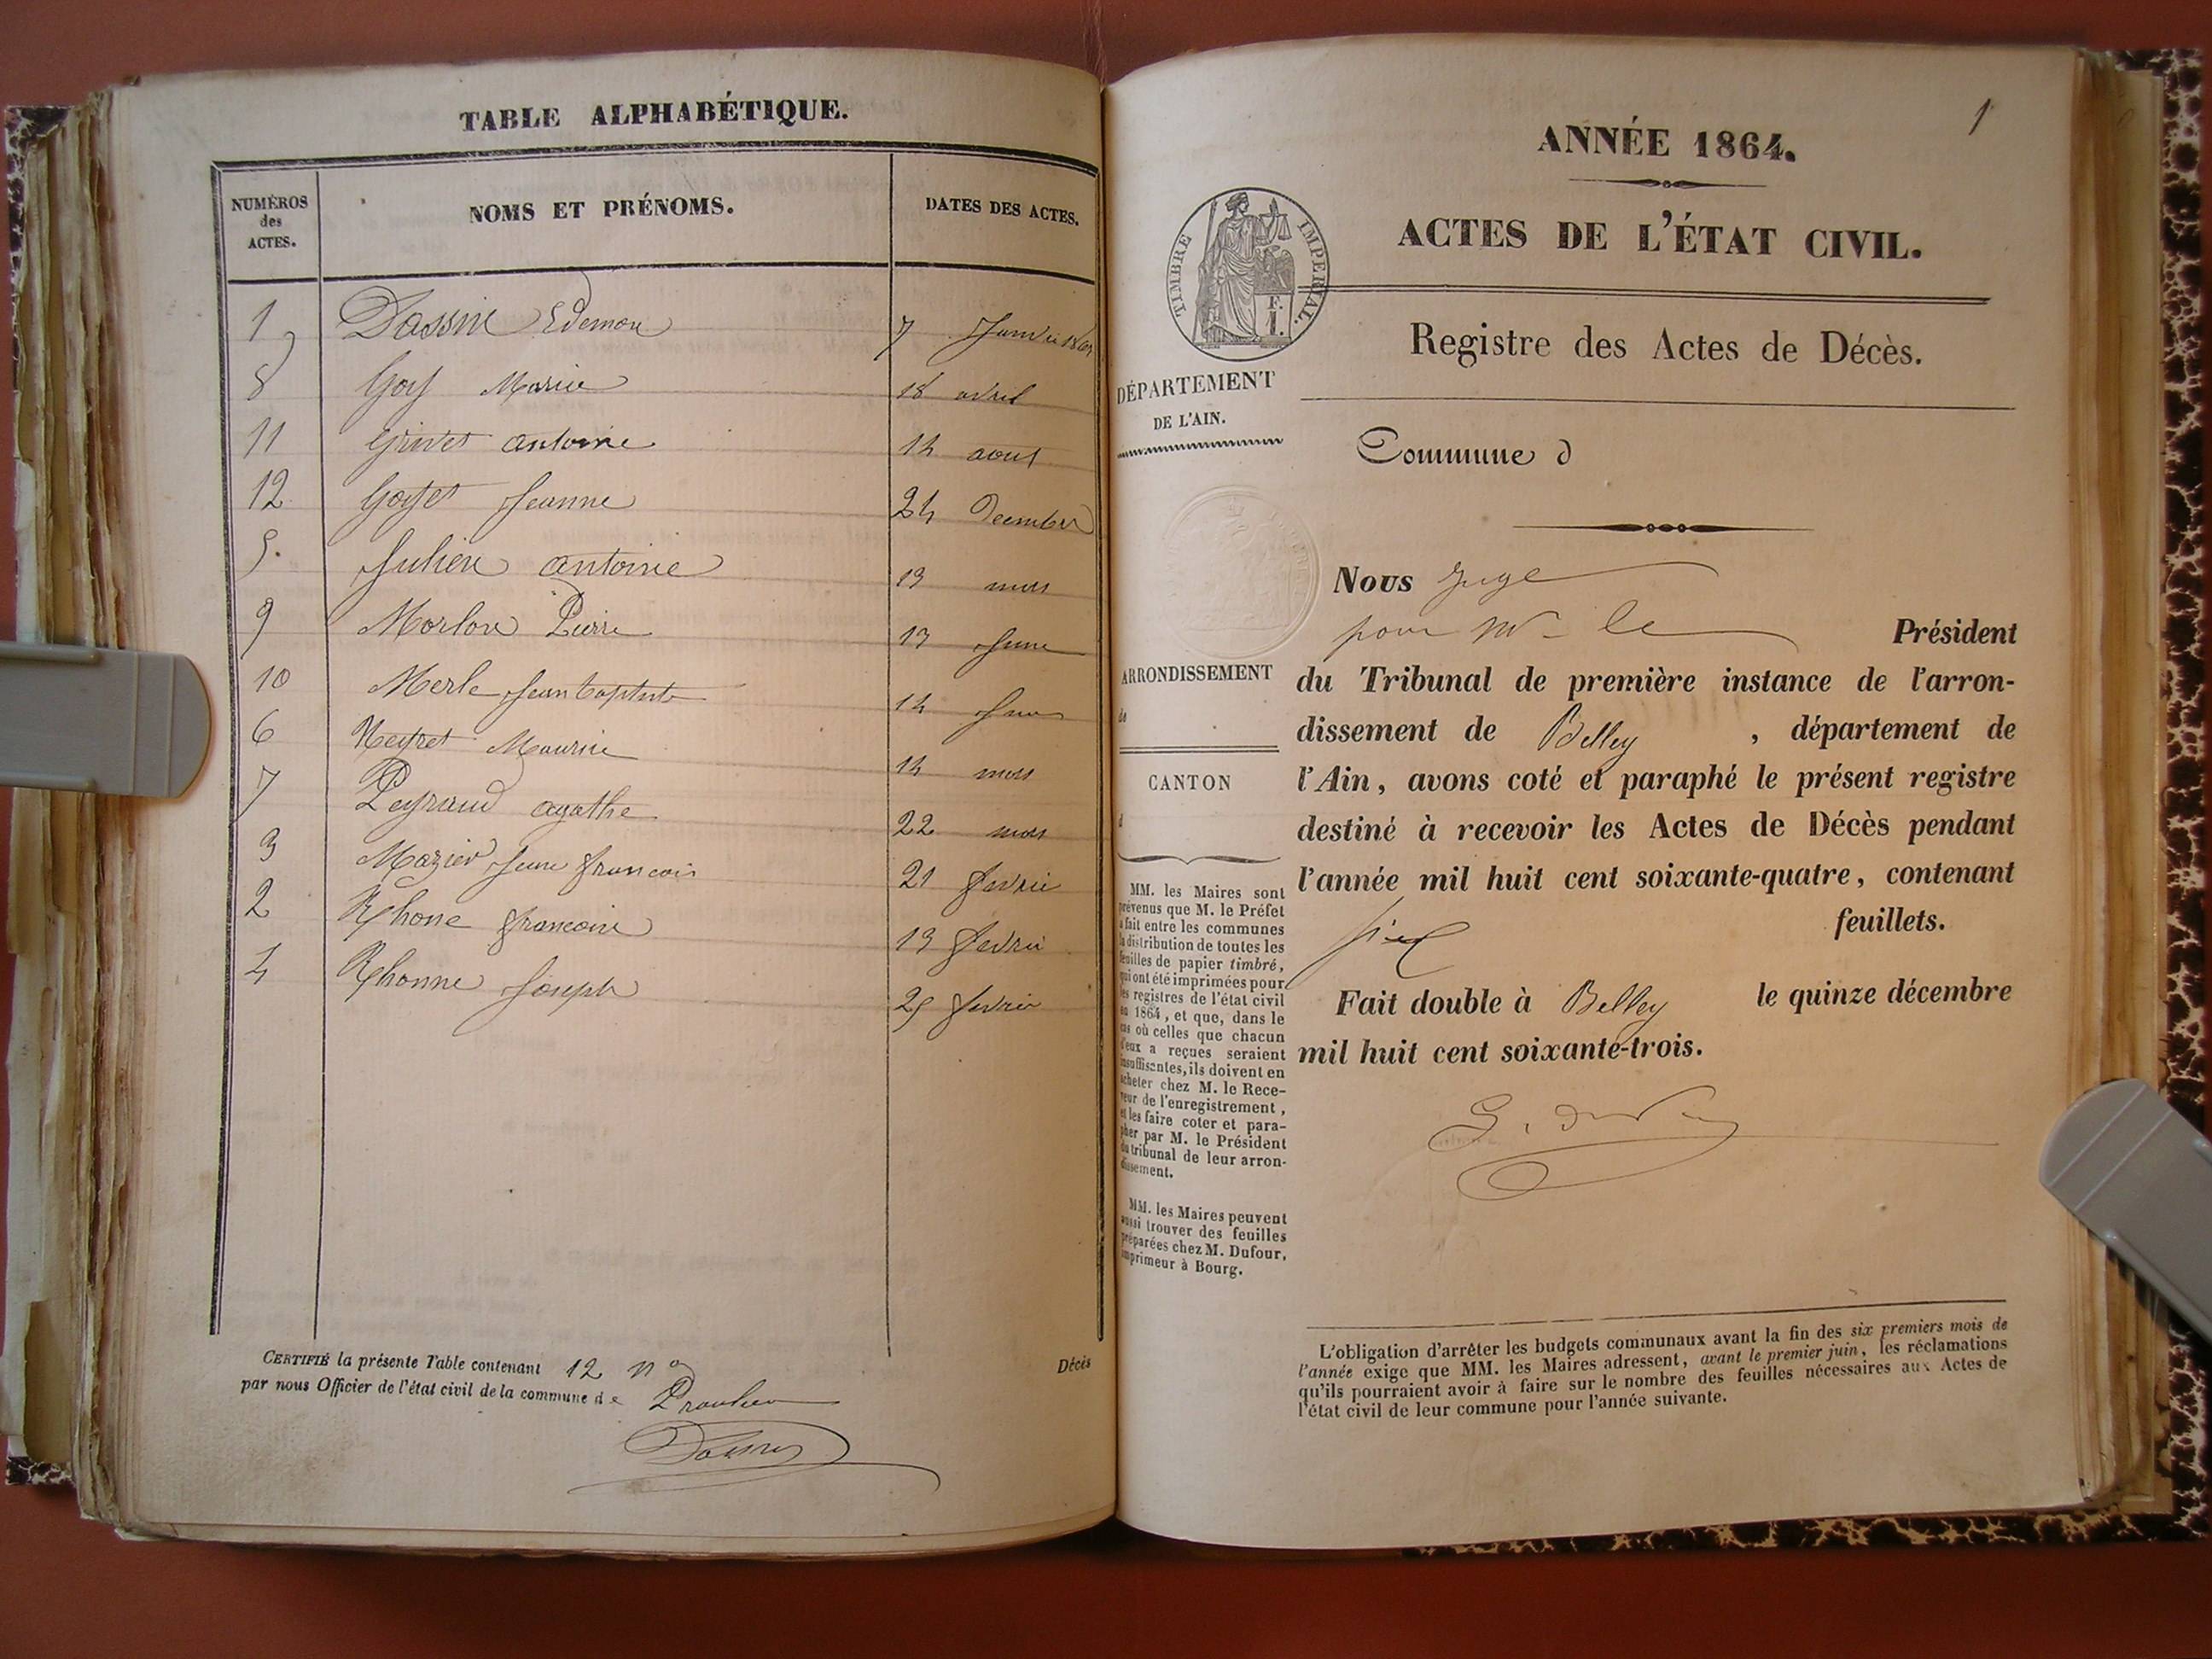 TABLE ALPHABÉTIQUE.
NUMÉROS
des
ACTES.
NOMS ET PRÉNOMS.
DATES DES ACTES.
1 Dassin Edemon 7
8 Goy Marie 18 avril
11 Grivet antoine 14 aout
12 Goyet Jeanne 24 Decembre
5. Julien antoine 13 mars
9 Morlon Pierre 13
10 Merle Jean baptiste 14
6 Neyret Maurice 14 mars
7 Peyraud agathe 22 mars
3 Mazier francois 21 fevrier
2 Rhone francoise 13 fevrier
4 Rhonne Joseph 25 fevrier
CERTIFIÉ la présente Table contenant 12 n°
par nous Officier de l'état civil de la commune de
Décès
1
ANNÉE 1864.
TIMBRE IMPÉRIAL.
F.
1.
ACTES DE L'ÉTAT CIVIL.
Registre des Actes de Décès.
DÉPARTEMENT
DE L'AIN.
Commune d
ARRONDISSEMENT
de
CANTON
d
Nous juge
pour Mr le Président
du Tribunal de première instance de l'arron-
dissement de Belley , département de
l'Ain, avons coté et paraphé le présent registre
destiné à recevoir les Actes de Décès pendant
l'année mil huit cent soixante-quatre, contenant
feuillets.
Fait double à Belley le quinze décembre
mil huit cent soixante-trois.
MM. les Maires sont
prévenus que M. le Préfet
a fait entre les communes
la distribution de toutes les
feuilles de papier timbré,
qui ont été imprimées pour
les registres de l'état civil
en 1864, et que, dans le
cas où celles que chacun
d'eux a reçues seraient
insuffisantes, ils doivent en
acheter chez M. le Rece-
veur de l'enregistrement,
et les faire coter et para-
pher par M. le Président
du tribunal de leur arron-
dissement.
MM. les Maires peuvent
aussi trouver des feuilles
préparées chez M. Dufour,
imprimeur à Bourg.
L'obligation d'arrêter les budgets communaux avant la fin des six premiers mois de
l'année exige que MM. les Maires adressent, avant le premier juin, les réclamations
qu'ils pourraient avoir à faire sur le nombre des feuilles nécessaires aux Actes de
l'état civil de leur commune pour l'année suivante.